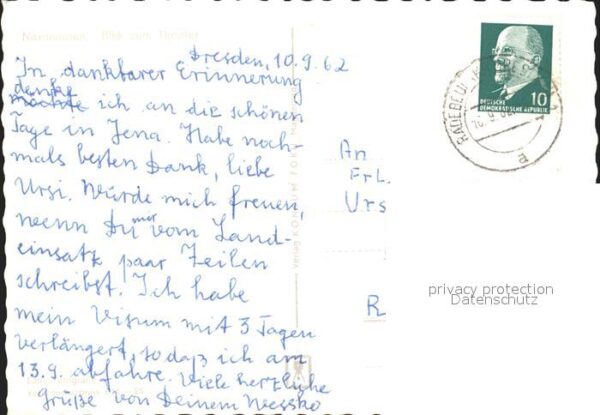 Dresden, 10.9.62
In dankbarer Erinnerung
denke
möchte ich an die schönen
Tage in Jena. Habe noch-
mals besten Dank, liebe
Ursi. Würde mich freuen,
wenn Du mir vom Land-
einsatz paar Zeilen
schreibst. Ich habe
mein Visum mit 3 Tagen
verlängert, so daß ich am
13.9. abfahre. Viele herzliche
Grüße von Deinem Wessko
An
Frl.
Urs
R
DEUTSCHE
DEMOKRATISCHE REPUBLIK
10
RADEBEUL
privacy protection
Datenschutz